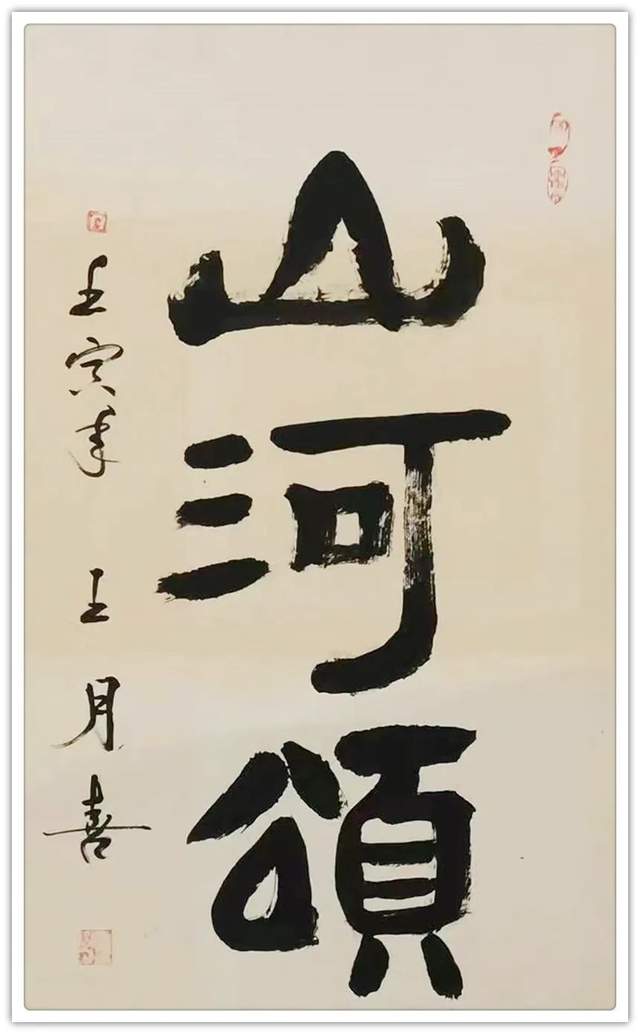 山河頌
壬寅年 王月喜